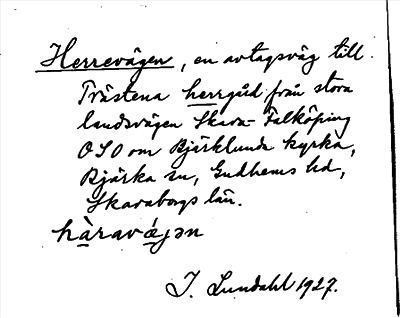 Herrevägen, en avtagsväg till
Trästena herrgård från stora
landsvägen Skara-Falköping
OSO om Bjärklunda kyrka,
Bjärka sn, Gudhems hd,
Skaraborgs län.
hàravǽjən
J. Lundahl 1927.